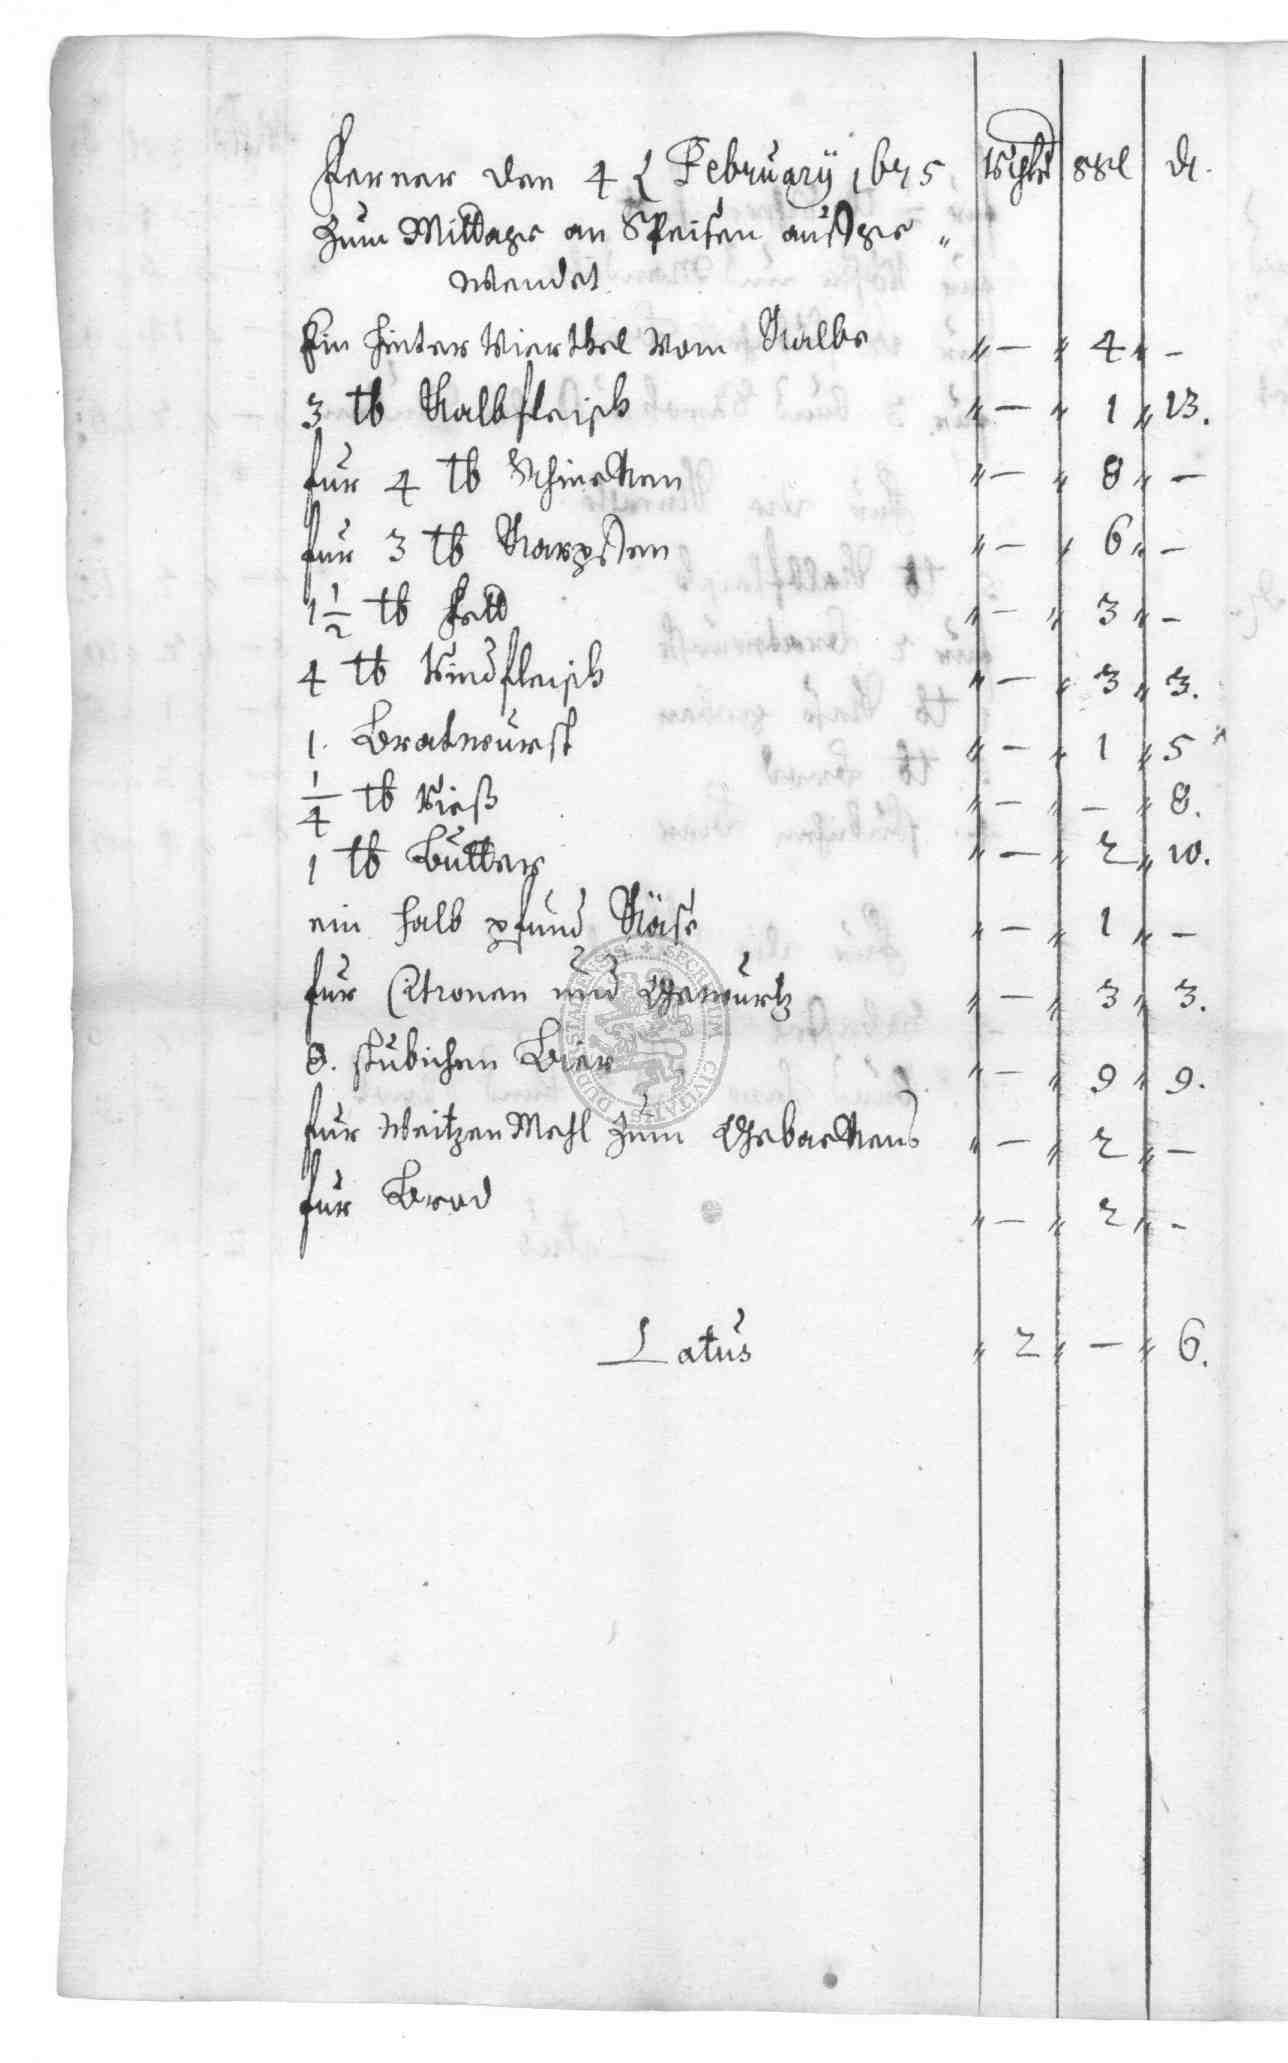 Ferner den 4 t February 1675 Rthlr ggl d.
Zum Mittage an Speisen auffge„
wendet
Ein hinter Vierthel vom Kalbe „ — „ 4 „ —
3 tb Kalbfleisch „ — „ 1 „ 13.
fur 4 tb Schincken „ — „ 8 „ —
fur 3 tb Karpffen „ — „ 6 „ —
1 1/2 tb fett „ — „ 3 „ —
4 tb Rindfleisch „ — „ 3 „ 3.
1. Bratwurst „ — „ 1 „ 5
1/4 tb Rieß „ — „ — „ 8.
1 tb Butter „ — „ 2 „ 10.
ein halb pfund Käse „ — „ 1 „ —
fur Citronen und Gewurtz „ — „ 3 „ 3.
8. stubichen Bier „ — „ 9 „ 9.
fur Weitzen Mehl Zum Gebackens „ — „ 2 „ —
fur Brod „ — „ 2 „ —
Latus „ 2 „ — „ 6.
SECRETUM CIVITATIS DUDERSTADIENSIS